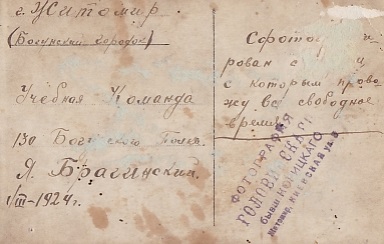 г. Житомир
(Богунский городок)
Учебная Команда
130 Богунского Полка
Я. Брагинский.
1/III-1924 г.
Сфото
рован с
с которым прово-
жу все свободное
время
ФОТОГРАФИЯ
БЫВШ. КОРИЦКАГО
Житомир, Киевская ул.